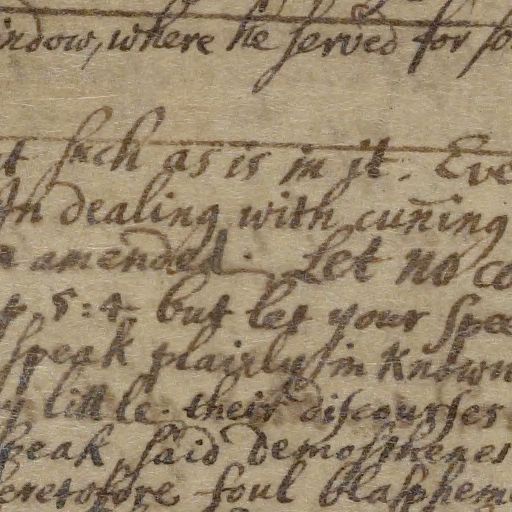 indow, where he served for so
t such as is in it. Eve
In dealing with cuning
amended. Let no co
t 5:4 but let your spee
speak plainly in known
little. their discourses
peak, said Demosthenes
eretofore foul blasphem